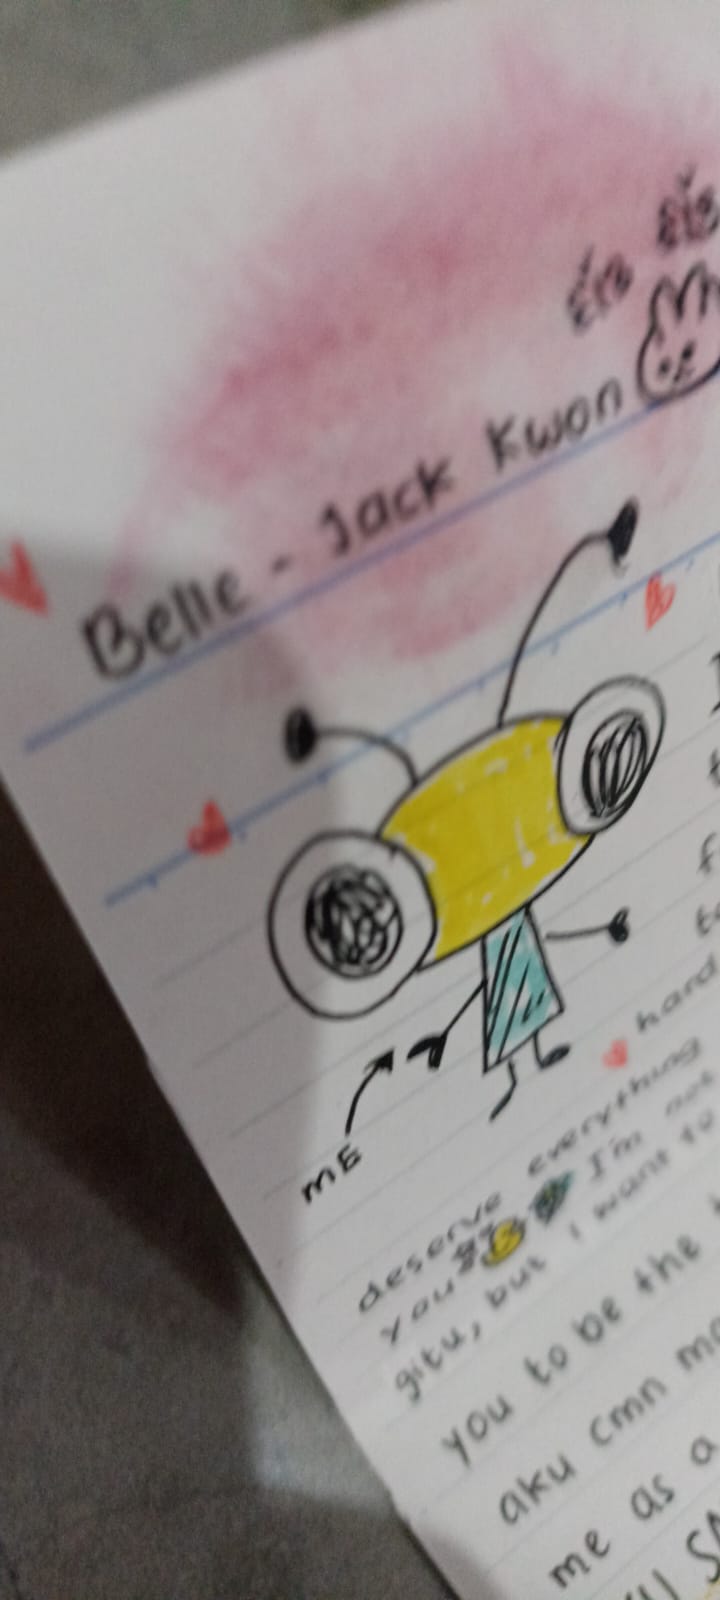 Belle - Jack Kwon
ME
hard
deserve everything
you I'm not
gitu, but i want to
you to be the
aku cmn
me as a